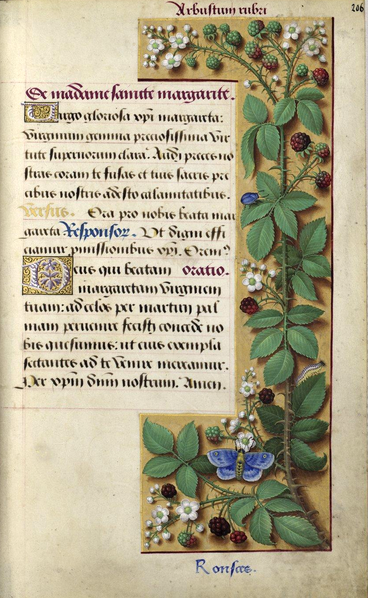 Arbustum rubri
206
De madame saincte margarite.
Virgo gloriosa xp̄i margareta:
Virginum gemma preciosissima vir
tute superiorum clara. Audi preces no
stras coram te fusas et tuis sacris pre
cibus nostris adesto calamitatibus.
Versus. Ora pro nobis beata mar
gareta Responsor. Ut digni effi
ciamur promissionibus xp̄i. Orem⁹
Deus qui beatam oratio.
margaretam virginem
tuam: ad celos per martiri pal
mam peruenire fecisti concede no
bis quesumus: ut eius exempla
sectantes ad te venire mereamur.
Per xp̄m dn̄m nostrum. Amen.
Ronsces.